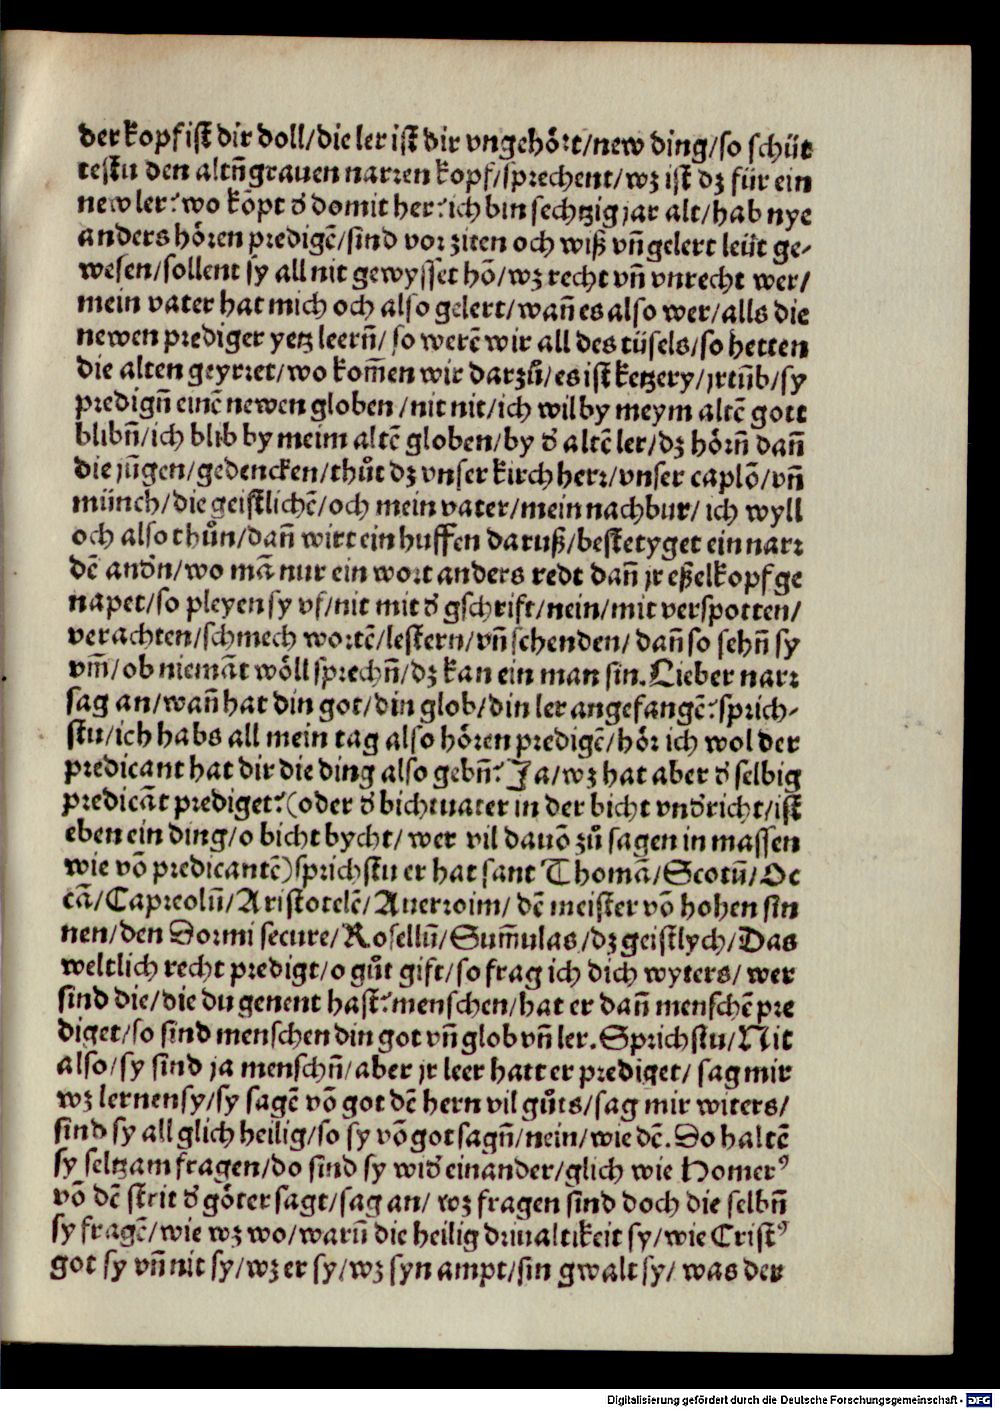 der kopf ist dir doll/die ler ist dir vngehört/new ding/so schüt
testu den altñ grauen narren kopf/sprechent/wz ist dz für ein
new ler? wo kōpt ð domit her? ich bin sechtzig jar alt/hab nye
anders hören predigē/sind vor ziten och wiß vñ gelert leüt ge-
wesen/sollent sy all nit gewysset hō/wz recht vñ vnrecht wer/
mein vater hat mich och also gelert/wañ es also wer/alls die
newen prediger yetz leerñ/ so werē wir all des tüfels/so hetten
die alten geyrret/wo kom̄en wir darzů/es ist ketzery/jrtũb/sy
predigñ einē newen globen /nit nit/ich wil by meym altē gott
blibñ/ich blib by meim altē globen/by ð altē ler/dz hörñ dañ
die jũgen/gedencken/thůt dz vnser kirch herr/vnser caplō/vñ
münch/die geistlichē/och mein vater/mein nachbur/ ich wyll
och also thůn/dañ wirt ein huffen daruß/bestetyget ein narr
dē andn/wo mā nur ein wort anders redt dañ jr eßelkopf ge
napet/so pleyen sy vf/nit mit ð gschrift/nein/mit verspotten/
verachten/schmech wortē/lestern/vñ schenden/ dañ so sehñ sy
vm̄/ob niemāt wöll sprechñ/dz kan ein man sin. Lieber narr
sag an/wañ hat din got/din glob/din ler angefangē? sprich-
stu/ich habs all mein tag also hören predigē/hör ich wol der
predicant hat dir die ding also gebñ? Ja/wz hat aber ð selbig
predicāt prediget? (oder ð bichtuater in der bicht vnðricht/ist
eben ein ding/o bicht bycht/ wer vil dauō zů sagen in massen
wie vō predicantē) sprichstu er hat sant Thomā/Scotũ/Oc
cā/Capreolũ/Aristotelē/Auerroim/ dē meister vō hohen sin
nen/den Dormi secure/Rosellũ/Sum̄ulas/dz geistlych/Das
weltlich recht predigt/o gůt gift/so frag ich dich wyters/ wer
sind die/die du genent hast? menschen/hat er dañ menschē pre
diget/so sind menschen din got vñ glob vñ ler. Sprichstu/Nit
also/sy sind ja menschñ/aber jr leer hatt er prediget/ sag mir
wz lernen sy/sy sagē vō got dē hern vil gůts/sag mir witers/
sind sy all glich heilig/so sy vō got sagñ/nein/wie dē. Do haltē
sy seltzam fragen/do sind sy wið einander/glich wie Homerꝰ
vō dē strit ð göter sagt/sag an/ wz fragen sind doch die selbñ
sy fragē/wie wz wo/warũ die heilig driualtikeit sy/wie Cristꝰ
got sy vñ nit sy/wz er sy/wz syn ampt/sin gwalt sy/ was der
Digitalisierung gefördert durch die Deutsche Forschungsgemeinschaft - DFG